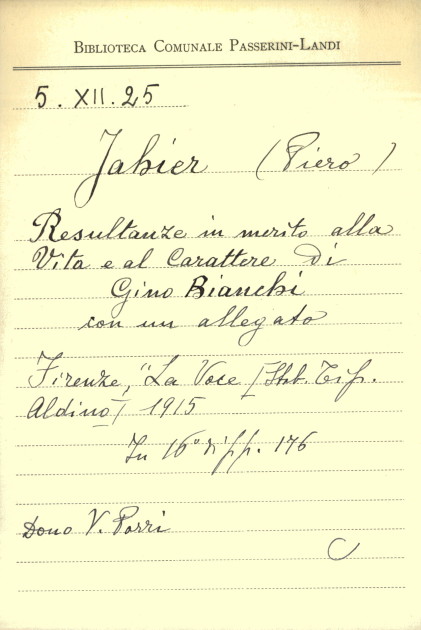 BIBLIOTECA COMUNALE PASSERINI-LANDI
5. XII. 25
Jahier (Piero)
Resultanze in merito alla
Vita e al Carattere di
Gino Bianchi
con un allegato
Firenze, "La Voce [Stab. Tip.
Aldino] 1915
In 16° di pp. 176
Dono V. Porri
C